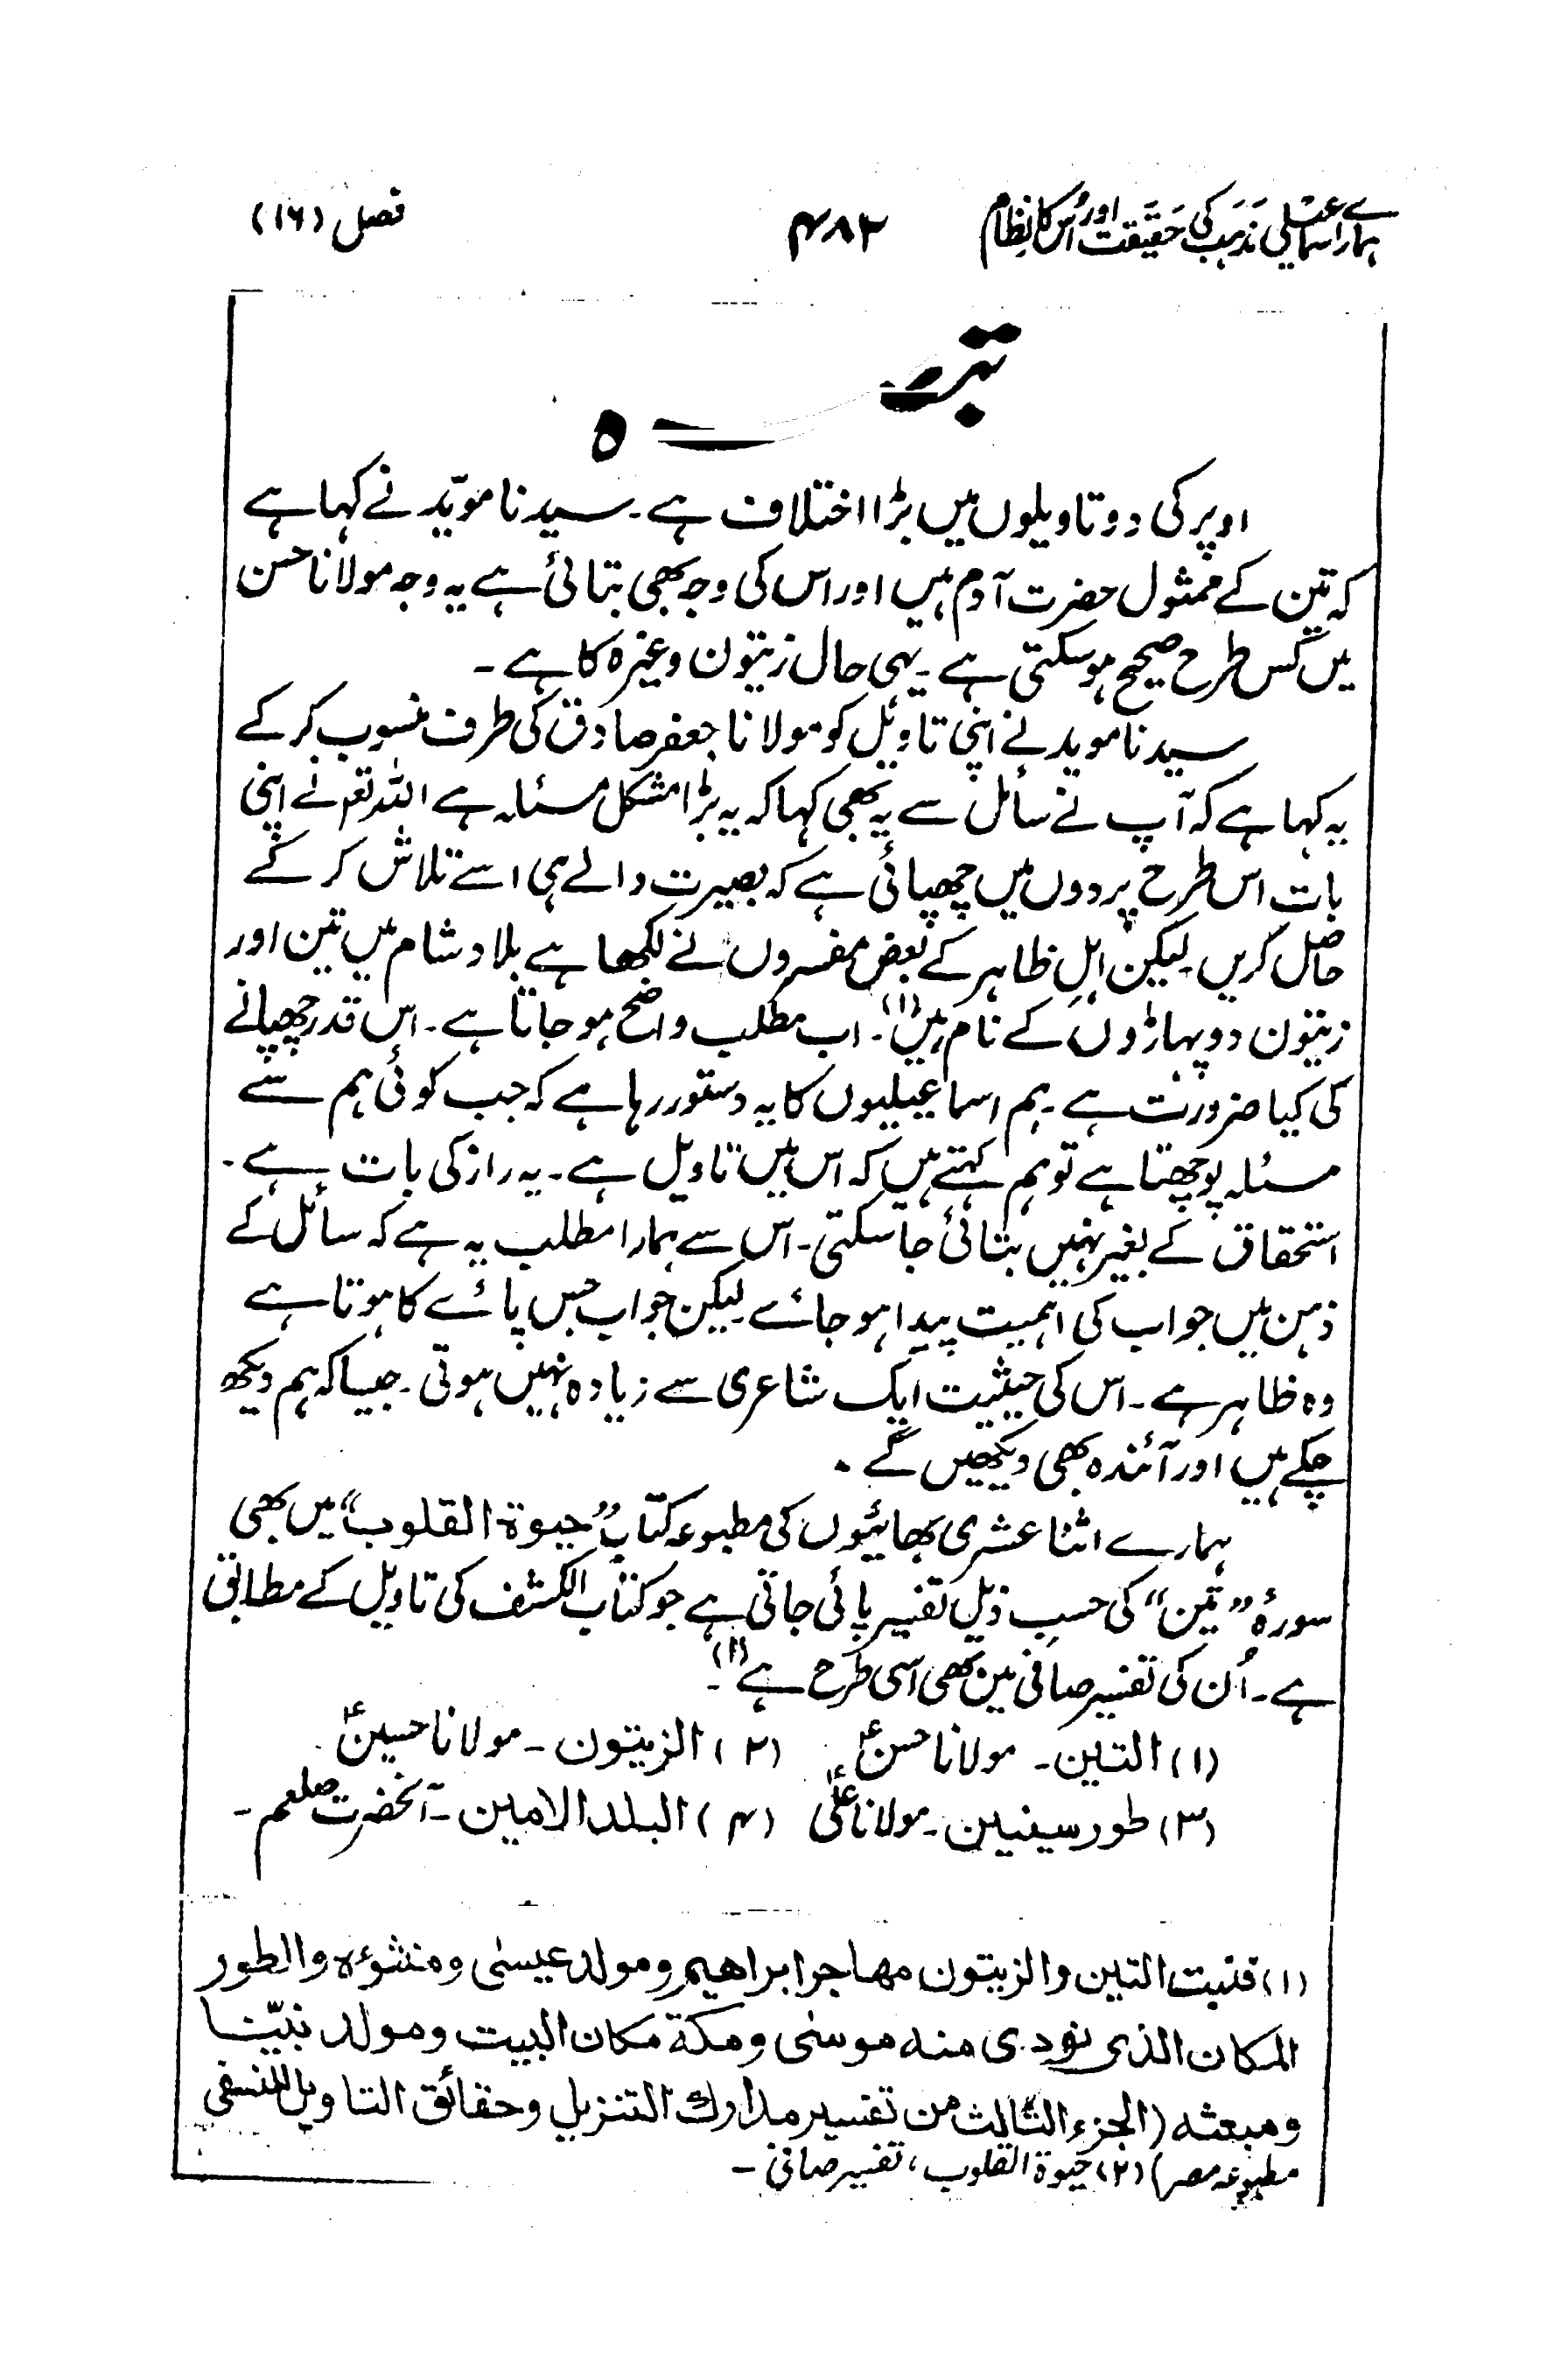 ہمارے اسماعیلی مذہب کی حقیقت اور اُس کا نظام ۴۸۲ فصل (۱۶)
تبصرہ
اوپر کی دو تاویلوں میں بڑا اختلاف ہے۔ سیدنا مویّد نے کہا ہے
کہ تین کے ممثول حضرت آدم ہیں اور اس کی وجہ بھی بتائی ہے یہ وجہ مولانا حسن
میں کس طرح صحیح ہو سکتی ہے۔ یہی حال زیتون وغیرہ کا ہے۔
سیدنا موید نے اپنی تاویل کو مولانا جعفر صادق کی طرف منسوب کر کے
یہ کہا ہے کہ آپ نے سائل سے یہ بھی کہا کہ یہ بڑا مشکل مسئلہ ہے اللہ تعم نے اپنی
بات اس طرح پردوں میں چھپائی ہے کہ بصیرت والے ہی اسے تلاش کر کے
حاصل کریں۔ لیکن اہلِ ظاہر کے بعض مفسروں نے لکھا ہے بلاد شام میں تین اور
زیتون دو پہاڑوں کے نام ہیں(۱)۔ اب مطلب واضح ہو جاتا ہے۔ اس قدر چھپانے
کی کیا ضرورت ہے۔ ہم اسماعیلیوں کا یہ دستور رہا ہے کہ جب کوئی ہم سے
مسئلہ پوچھتا ہے تو ہم کہتے ہیں کہ اس میں تاویل ہے۔ یہ راز کی بات ہے۔
استحقاق کے بغیر نہیں بتائی جا سکتی۔ اس سے ہمارا مطلب یہ ہے کہ سائل کے
ذہن میں جواب کی اہمیت پیدا ہو جائے۔ لیکن جواب جس پائے کا ہوتا ہے
وہ ظاہر ہے۔ اس کی حیثیت ایک شاعری سے زیادہ نہیں ہوتی۔ جیسا کہ ہم دیکھ
چکے ہیں اور آئندہ بھی دیکھیں گے۔
ہمارے اثنا عشری بھائیوں کی مطبوعہ کتاب ”حیوۃ القلوب“ میں بھی
سورۂ ”تین“ کی حسبِ ذیل تفسیر پائی جاتی ہے جو کتاب الکشف کی تاویل کے مطابق
ہے۔ اُن کی تفسیر صافی میں بھی اسی طرح ہے(۲)۔
(۱) التین۔ مولانا حسنؑ (۲) الزیتون۔ مولانا حسینؑ
(۳) طور سینین۔ مولانا علیؑ (۴) البلد الامین۔ آنحضرت صلعم۔
(۱) فنبت التین والزیتون مھاجر ابراھیم ومولد عیسیٰ ومنشؤہ والطور
المکان الذی نودی منہ موسیٰ ومکۃ مکان البیت ومولد نبیّنا
ومبعثہ (الجزء الثالث من تفسیر مدارک التنزیل وحقائق التاویل للنسفی
مطبوعہ مصر) (۲) حیوۃ القلوب، تفسیر صافی۔